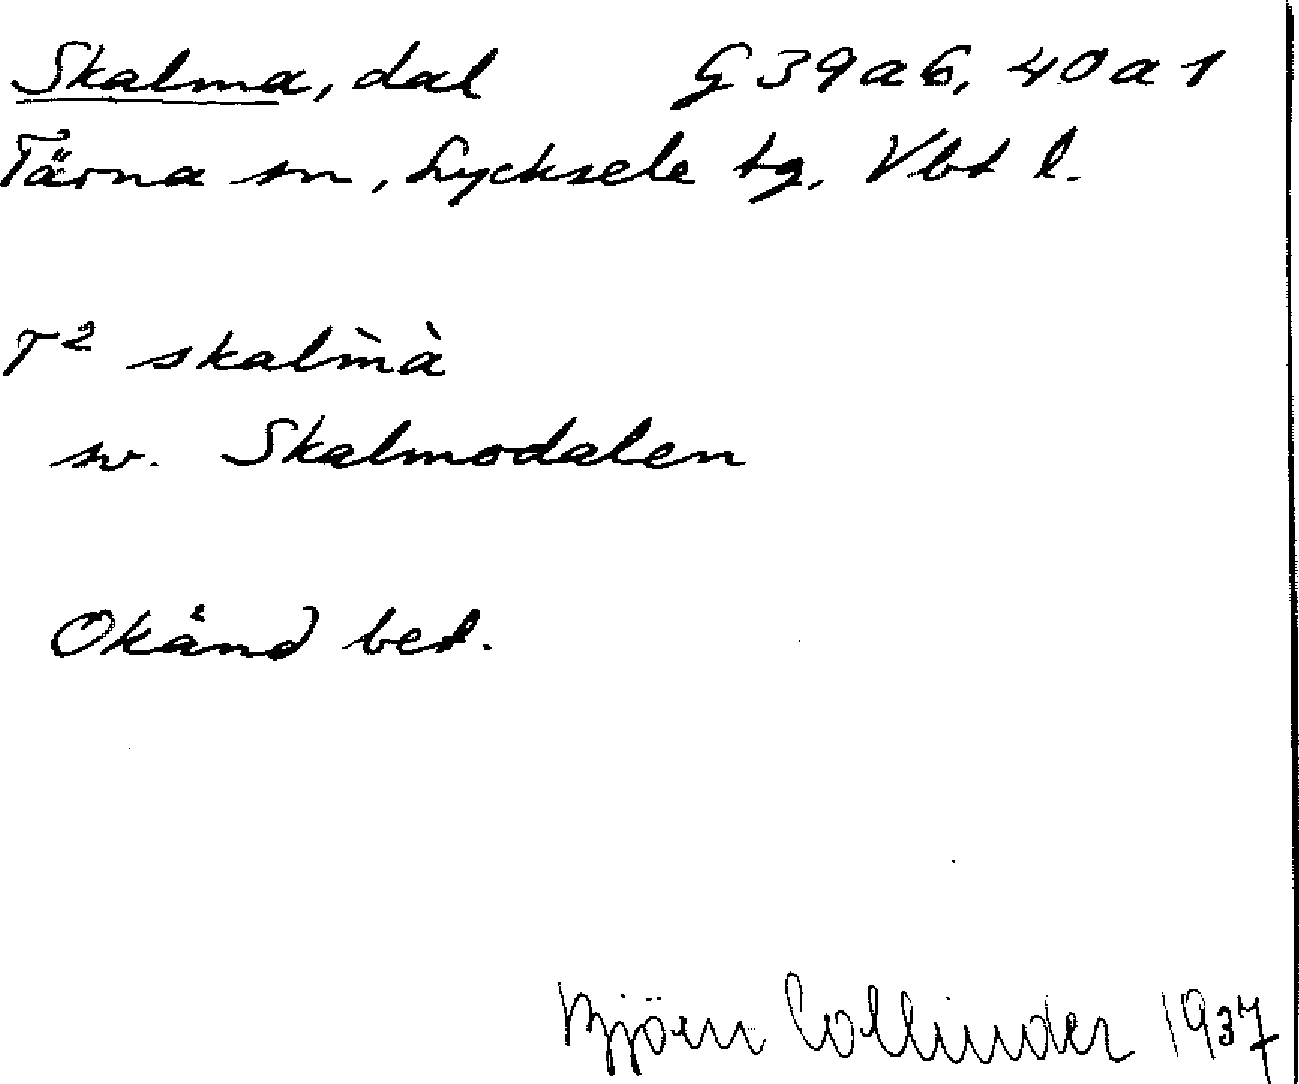 Skalma, dal G 39a6, 40a1
Tärna sn, Lycksele tg, Vbt l.
T² skalm̀à
sv. Skalmodalen
Okänd bet.
Björn Collinder 1937